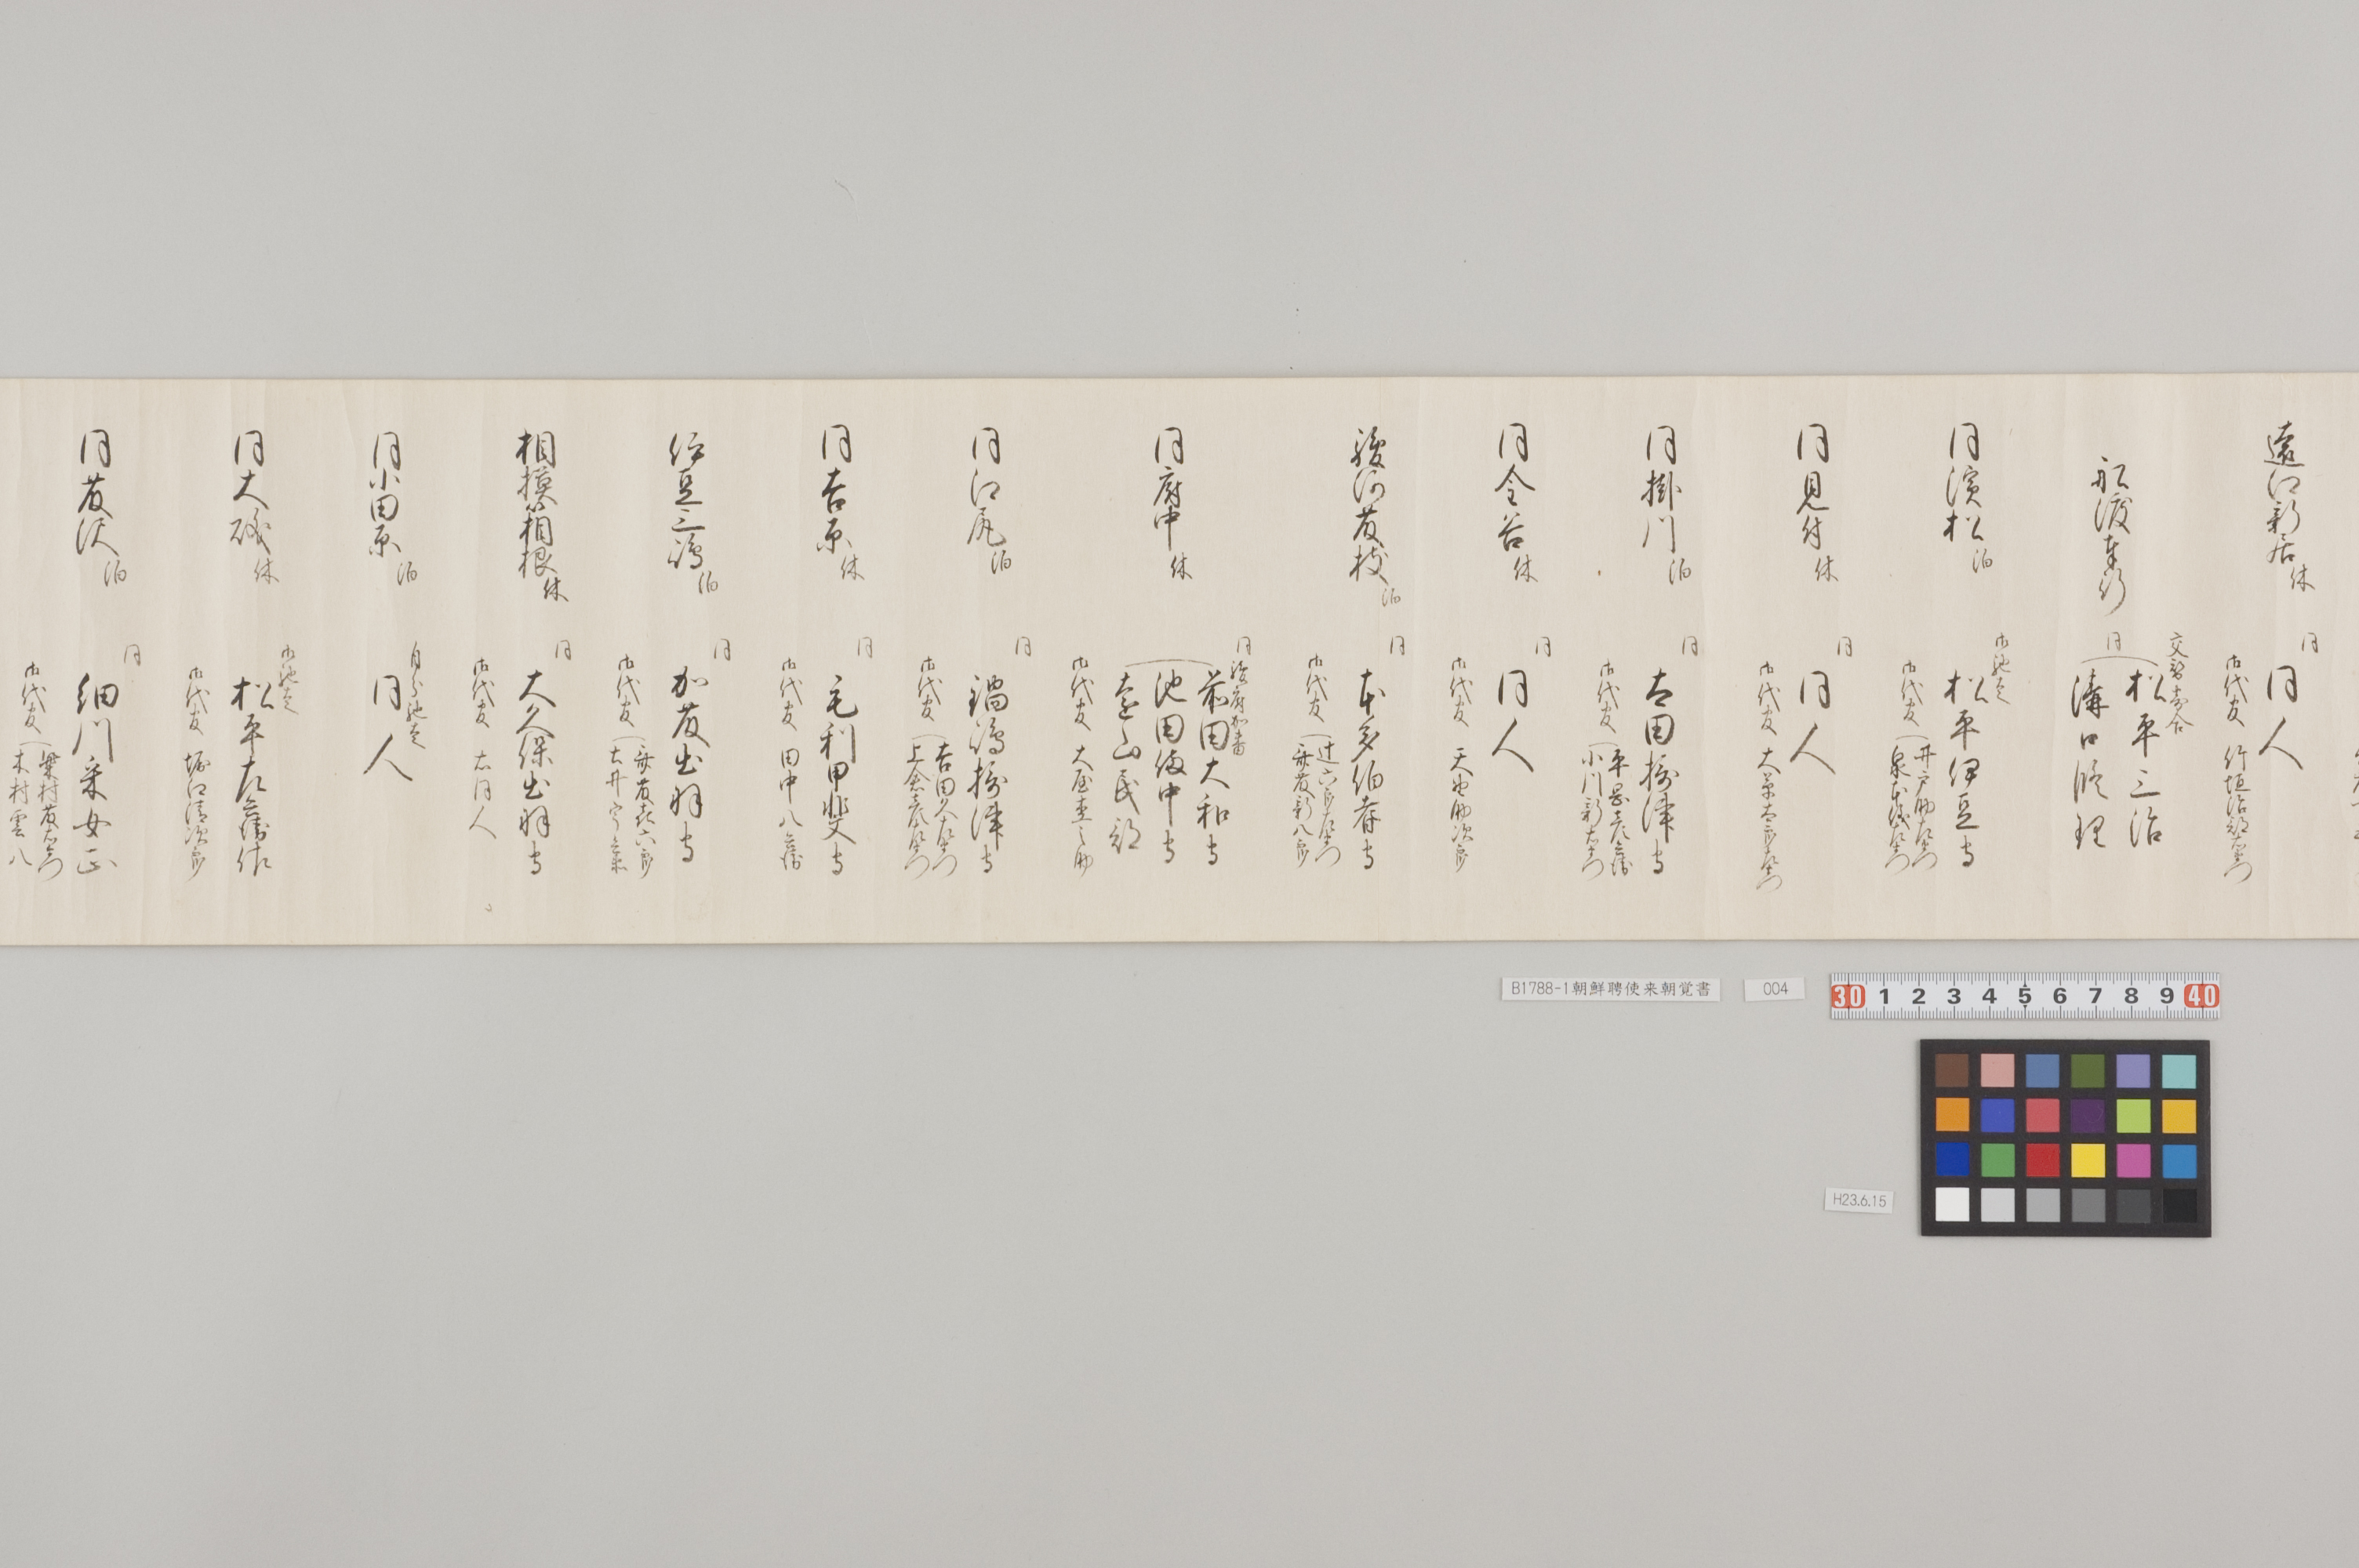 遠江新居休
同
同人
御代官 竹垣治部右衛門
船渡奉行
交替寄合
松平三治
同
溝口修理
同濱松泊
御馳走
松平伊豆守
御代官
井戸助左衛門
同見付休
同
同人
御代官 大草太郎左衛門
同掛川泊
同
太田摂津守
御代官
平岡喜左衛門
小川新右衛門
同金谷休
同
同人
御代官 天野助次郎
駿河藤枝泊
同
本多伯耆守
御代官
辻六郎左衛門
斎藤新八郎
同府中休
同駿府加番
前田大和守
池田備中守
遠山民部
御代官 大屋杢之助
同江尻泊
同
鍋嶋摂津守
御代官
吉田久左衛門
同吉原休
同
毛利甲斐守
御代官 田中八兵衛
伊豆三嶋泊
同
加藤出羽守
御代官
斎藤喜六郎
相模箱根休
同
大久保出羽守
御代官 右同人
同小田原泊
自分馳走
同人
同大磯休
御馳走
松平左兵衛佐
御代官 堀江清次郎
同藤沢泊
同
細川采女正
御代官
梁村藤右衛門
木村雲八
B1788-1朝鮮聘使来朝覚書
004
30 1 2 3 4 5 6 7 8 9 40
H23.6.15